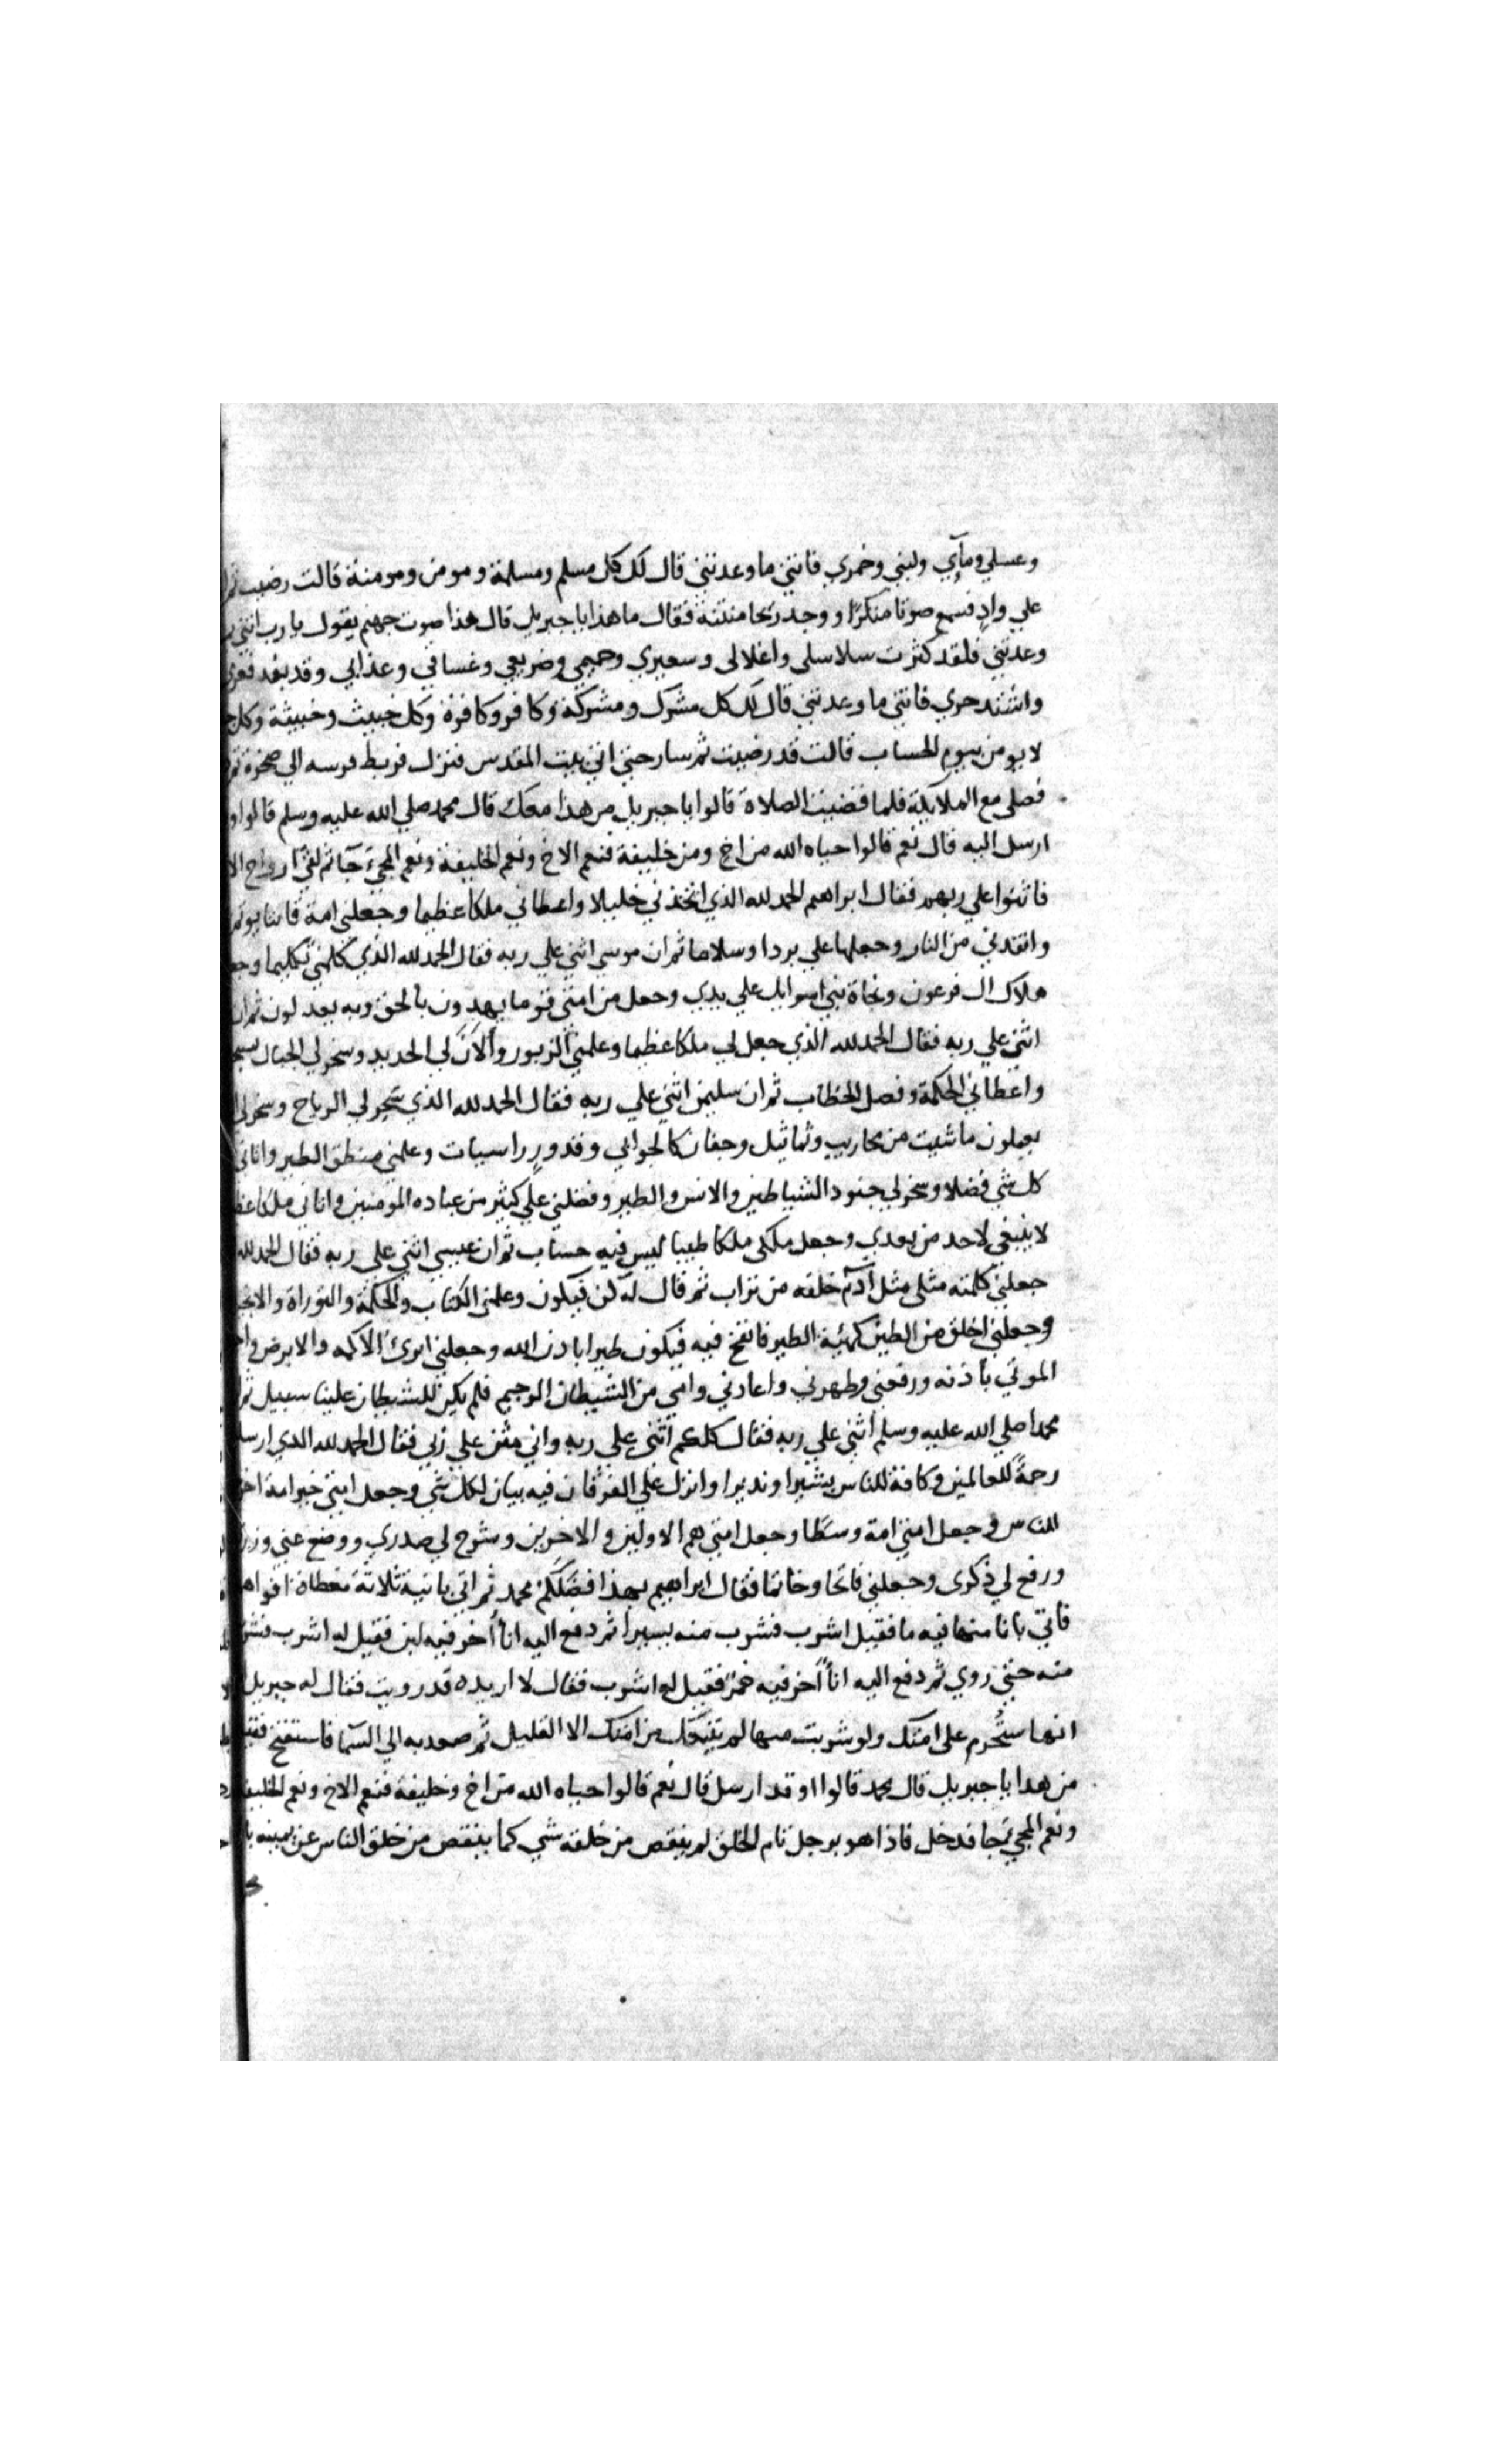 وعسلي ومآي ولبني وخمري فاتني ما وعدتني قال لك كل مسلم ومسلمة ومومن ومومنة قالت رضيت
علي وادٍ فسمع صوتا منكرًا ووجد ريحا منتنة فقال ما هذا يا جبريل قال هذا صوت جهنم يقول يا رب اتني
وعدتني فلقد كثرت سلاسلي واغلالي وسعيري وحميمي وضريعي وغساقي وعذابي وقد بعد
واشتد حري فاتني ما وعدتني قال لك كل مشرك ومشركة وكافر وكافرة وكل خبيث وخبيثة وكل
بيوم الحساب قالت قد رضيت ثم سار حتي اتي بيت المقدس فنزل فربط فرسه الي صخرة
فصلي مع الملايكة فلما قضيت الصلاة قالوا يا جبريل من هذا معك قال محمد صلي الله عليه وسلم قالوا
ارسل اليه قال نعم قالوا حياه الله من اخٍ ومن خليفة فنعم الاخ ونعم الخليفة ونعم المجيء جآ ثم لقي ارواح
فاثنوا علي ربهم فقال ابراهيم الحمد لله الذي اتخذني خليلا واعطاني ملكا عظيما وجعلني امة قانتا
وانقذني من النار وجعلها علي بردا وسلاما ثم ان موسي اثني علي ربه فقال الحمد لله الذي كلمني تكليما
هلاك ال فرعون ونجاة بني اسرايل علي يدي وجعل من امتي قوما يهدون بالحق وبه يعدلون ثم ان
اثني علي ربه فقال الحمد لله الذي جعل لي ملكا عظيما وعلمني الزبور وألان لي الحديد وسخر لي الجبال
واعطاني الحكمة وفصل الخطاب ثم ان سليمن اثني علي ربه فقال الحمد لله الذي سخر لي الرياح وسخر لي
يعملون ما شيت من محاريب وتماثيل وجفان كالجوابي وقدورٍ راسيات وعلمني منطق الطير واتاني
كل شي فضلا وسخر لي جنود الشياطين والانس والطير وفضلني علي كثير من عباده المومنين واتاني ملكا
لا ينبغي لاحد من بعدي وجعل ملكي ملكا طيبا ليس فيه حساب ثم ان عيسي اثني علي ربه فقال الحمد لله
جعلني كلمته مثلي مثل آدم خلقه من تراب ثم قال له كن فيكون وعلمني الكتاب والحكمة والتوراة
وجعلني اخلق من الطين كهيئة الطير فانفخ فيه فيكون طيرا باذن الله وجعلني ابرئ الاكمه والابرص
الموتي بأذنه ورفعني وطهرني واعاذني وامي من الشيطان الرجيم فلم يكن للشيطان علينا سبيل
محمدا صلي الله عليه وسلم أثني علي ربه فقال كلكم أثني علي ربه واني مثن علي ربي فقال الحمد لله الذي
رحمةً للعالمين وكافة للناس بشيرا ونذيرا وانزل علي الفرقان فيه بيان لكل شي وجعل امتي خير امة
للناس وجعل امتي امة وسطا وجعل امتي هم الاولين والاخرين وشرح لي صدري ووضع عني
ورفع لي ذكري وجعلني فاتحا وخاتما فقال ابراهيم بهذا افضلكم محمد ثم اتي بانية ثلاثة مغطاة
فاتي بانا منها فيه ما فقيل اشرب فشرب منه يسيرا ثم دفع اليه انأ أخر فيه لبن فقيل له اشرب
منه حتي روي ثم دفع اليه انأً اخر فيه خمرٌ فقيل له اشرب فقال لا اريده قد رويت فقال له جبريل
انها ستُحرم علي امتك ولو شربت منها لم يتبعك من امتك الا القليل ثم صعد به الي السمآ فاستفتح
من هذا يا جبريل قال محمد قالوا اوقد ارسل قال نعم قالوا حياه الله من اخ وخليفة فنعم الاخ ونعم الخليفة
ونعم المجي جا فدخل فاذا هو برجل تام الخلق لم ينقص من خلقه شي كما ينقص من خلق الناس عن يمينه